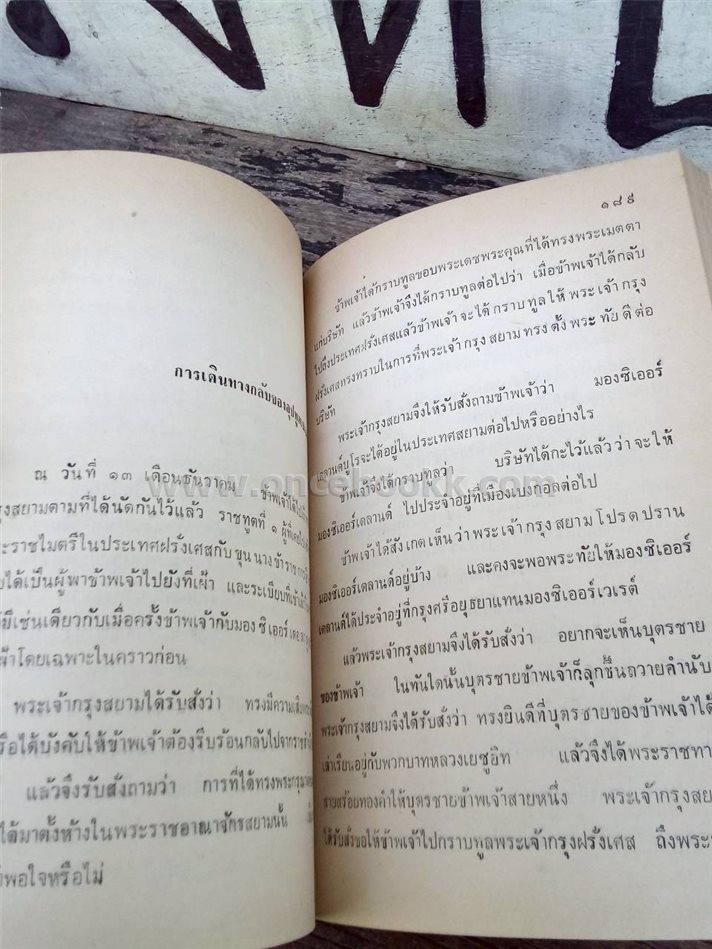 การเดินทางกลับของอุปทูต
ณ วันที่ ๑๓ เดือนธันวาคม ข้าพเจ้าได้
กรุงสยามตามที่ได้นัดกันไว้แล้ว ราชทูตที่ ๑ ผู้ที่
ะราชไมตรีในประเทศฝรั่งเศสกับขุนนางข้าราชการ
ได้เป็นผู้พาข้าพเจ้าไปยังที่เฝ้า และระเบียบที่เข้า
มีเช่นเดียวกับเมื่อครั้งข้าพเจ้ากับมองซิเออร์เดอ
เฝ้าโดยเฉพาะในคราวก่อน
พระเจ้ากรุงสยามได้รับสั่งว่า ทรงมีความ
หรือได้บังคับให้ข้าพเจ้าต้องรีบร้อนกลับไปจาก
แล้วจึงรับสั่งถามว่า การที่ได้ทรงพระกรุณา
ได้มาตั้งห้างในพระราชอาณาจักรสยามนั้น
พอใจหรือไม่
๑๘๙
ข้าพเจ้าได้กราบทูลขอบพระเดชพระคุณที่ได้ทรงพระเมตตา
แก่บริษัท แล้วข้าพเจ้าจึงได้กราบทูลต่อไปว่า เมื่อข้าพเจ้าได้กลับ
ไปถึงประเทศฝรั่งเศสแล้วข้าพเจ้าจะได้กราบทูลให้พระเจ้ากรุง
ฝรั่งเศสทรงทราบในการที่พระเจ้ากรุงสยามทรงตั้งพระทัยดีต่อ
บริษัท
พระเจ้ากรุงสยามจึงให้รับสั่งถามข้าพเจ้าว่า มองซิเออร์
เดลานด์บูโรจะได้อยู่ในประเทศสยามต่อไปหรืออย่างไร
ข้าพเจ้าจึงได้กราบทูลว่า บริษัทได้กะไว้แล้วว่าจะให้
มองซิเออร์เดลานด์ ไปประจำอยู่ที่เมืองเบงกอลต่อไป
ข้าพเจ้าได้สังเกตเห็นว่าพระเจ้ากรุงสยามโปรดปราน
มองซิเออร์เดลานด์อยู่บ้าง และคงจะพอพระทัยให้มองซิเออร์
เดลานด์ได้ประจำอยู่ที่กรุงศรีอยุธยาแทนมองซิเออร์เวเรต์
แล้วพระเจ้ากรุงสยามจึงได้รับสั่งว่า อยากจะเห็นบุตรชาย
ของข้าพเจ้า ในทันใดนั้นบุตรชายข้าพเจ้าก็ลุกขึ้นถวายคำนับ
พระเจ้ากรุงสยามจึงได้รับสั่งว่า ทรงยินดีที่บุตรชายของข้าพเจ้าได้
เล่าเรียนอยู่กับพวกบาทหลวงเยซูอิท แล้วจึงได้พระราชทา
สายสร้อยทองคำให้บุตรชายข้าพเจ้าสายหนึ่ง พระเจ้ากรุงสย
ได้รับสั่งขอให้ข้าพเจ้าไปกราบทูลพระเจ้ากรุงฝรั่งเศส ถึงพระ
www.oncebookk.com